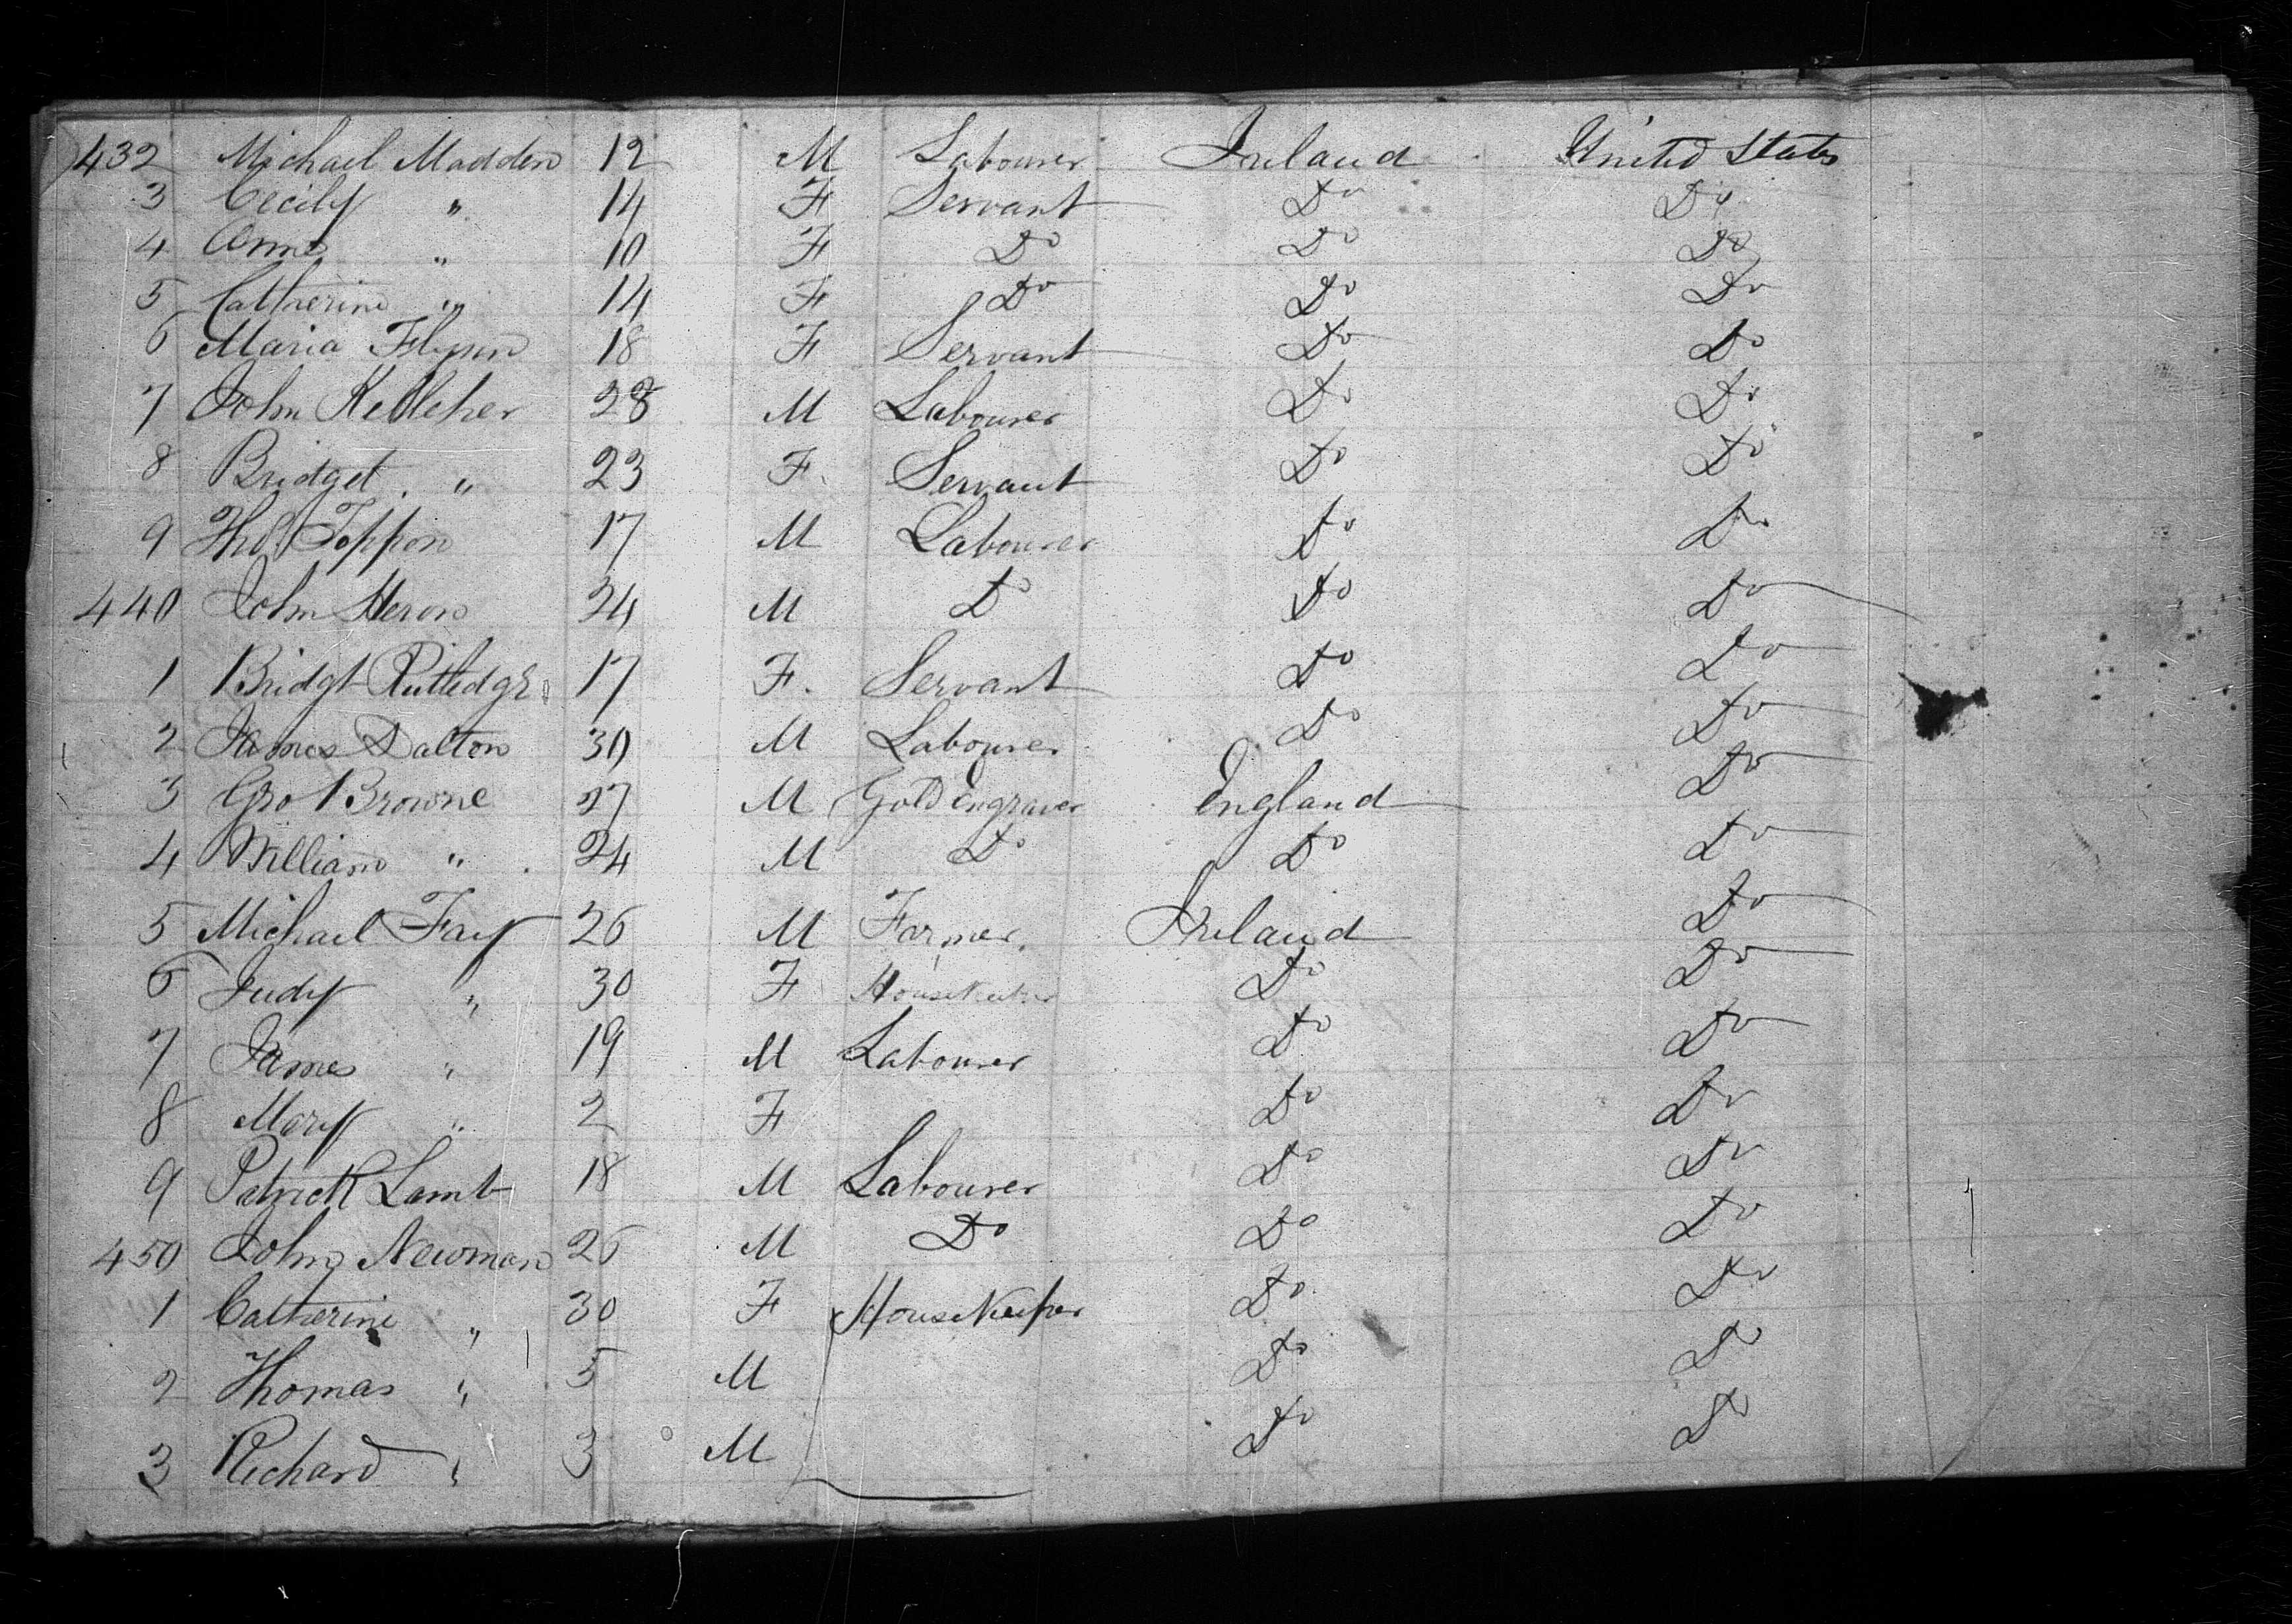 432 Michael Madden 12 M Labourer Ireland United States
3 Cecily " 14 F Servant Do Do
4 Anne " 10 F Do Do Do
5 Catherine " 14 F Do Do Do
6 Maria Flynn 18 F Servant Do Do
7 John Kelleher 28 M Labourer Do Do
8 Bridget " 23 F Servant Do Do
9 Thos Toppon 17 M Labourer Do Do
440 John Heron 24 M Do Do Do
1 Bridgt Rutledge 17 F. Servant Do Do
2 James Dalton 30 M Labourer Do Do
3 Geo Browne 27 M Gold engraver England Do
4 William " 24 M Do Do Do
5 Michael Fay 26 M Farmer Ireland Do
6 Judy " 30 F Housekeeper Do Do
7 James " 19 M Labourer Do Do
8 Mary " 2 F Do Do
9 Patrick Lamb 18 M Labourer Do Do
450 John Newman 26 M Do Do Do
1 Catherine " 30 F Housekeeper Do Do
2 Thomas " 5 M Do Do
3 Richard " 3 M Do Do